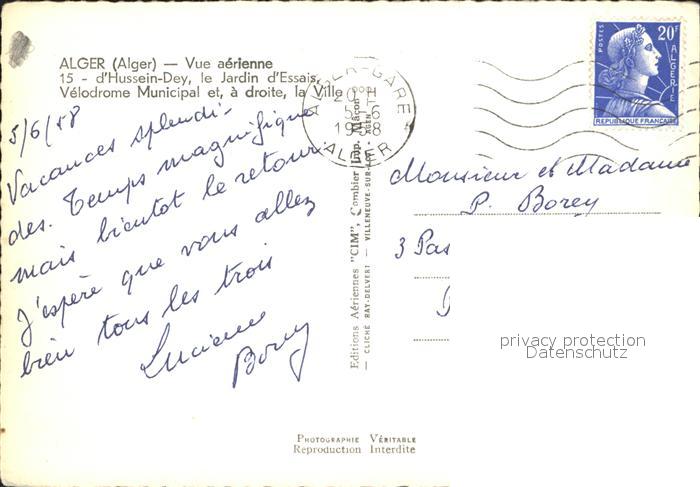 ALGER (Alger) — Vue aérienne
15 - d'Hussein-Dey, le Jardin d'Essais,
Vélodrome Municipal et, à droite, la Ville
5/6/58
Vacances splendi-
des. Temps magnifique
mais bientot le retour.
J'espère que vous allez
bien tous les trois
Lucienne
Borey
Editions Aériennes "CIM", Combier Imp. Mâcon
— CLICHÉ RAY-DELVERT — VILLENEUVE-SUR-LOT - AGEN
PHOTOGRAPHIE VÉRITABLE
Reproduction Interdite
ALGER-GARE
20H
5-6
1958
ALGER
POSTES
20F
ALGERIE
REPUBLIQUE FRANÇAISE
Monsieur et Madame
P. Borey
3 Pas
privacy protection
Datenschutz